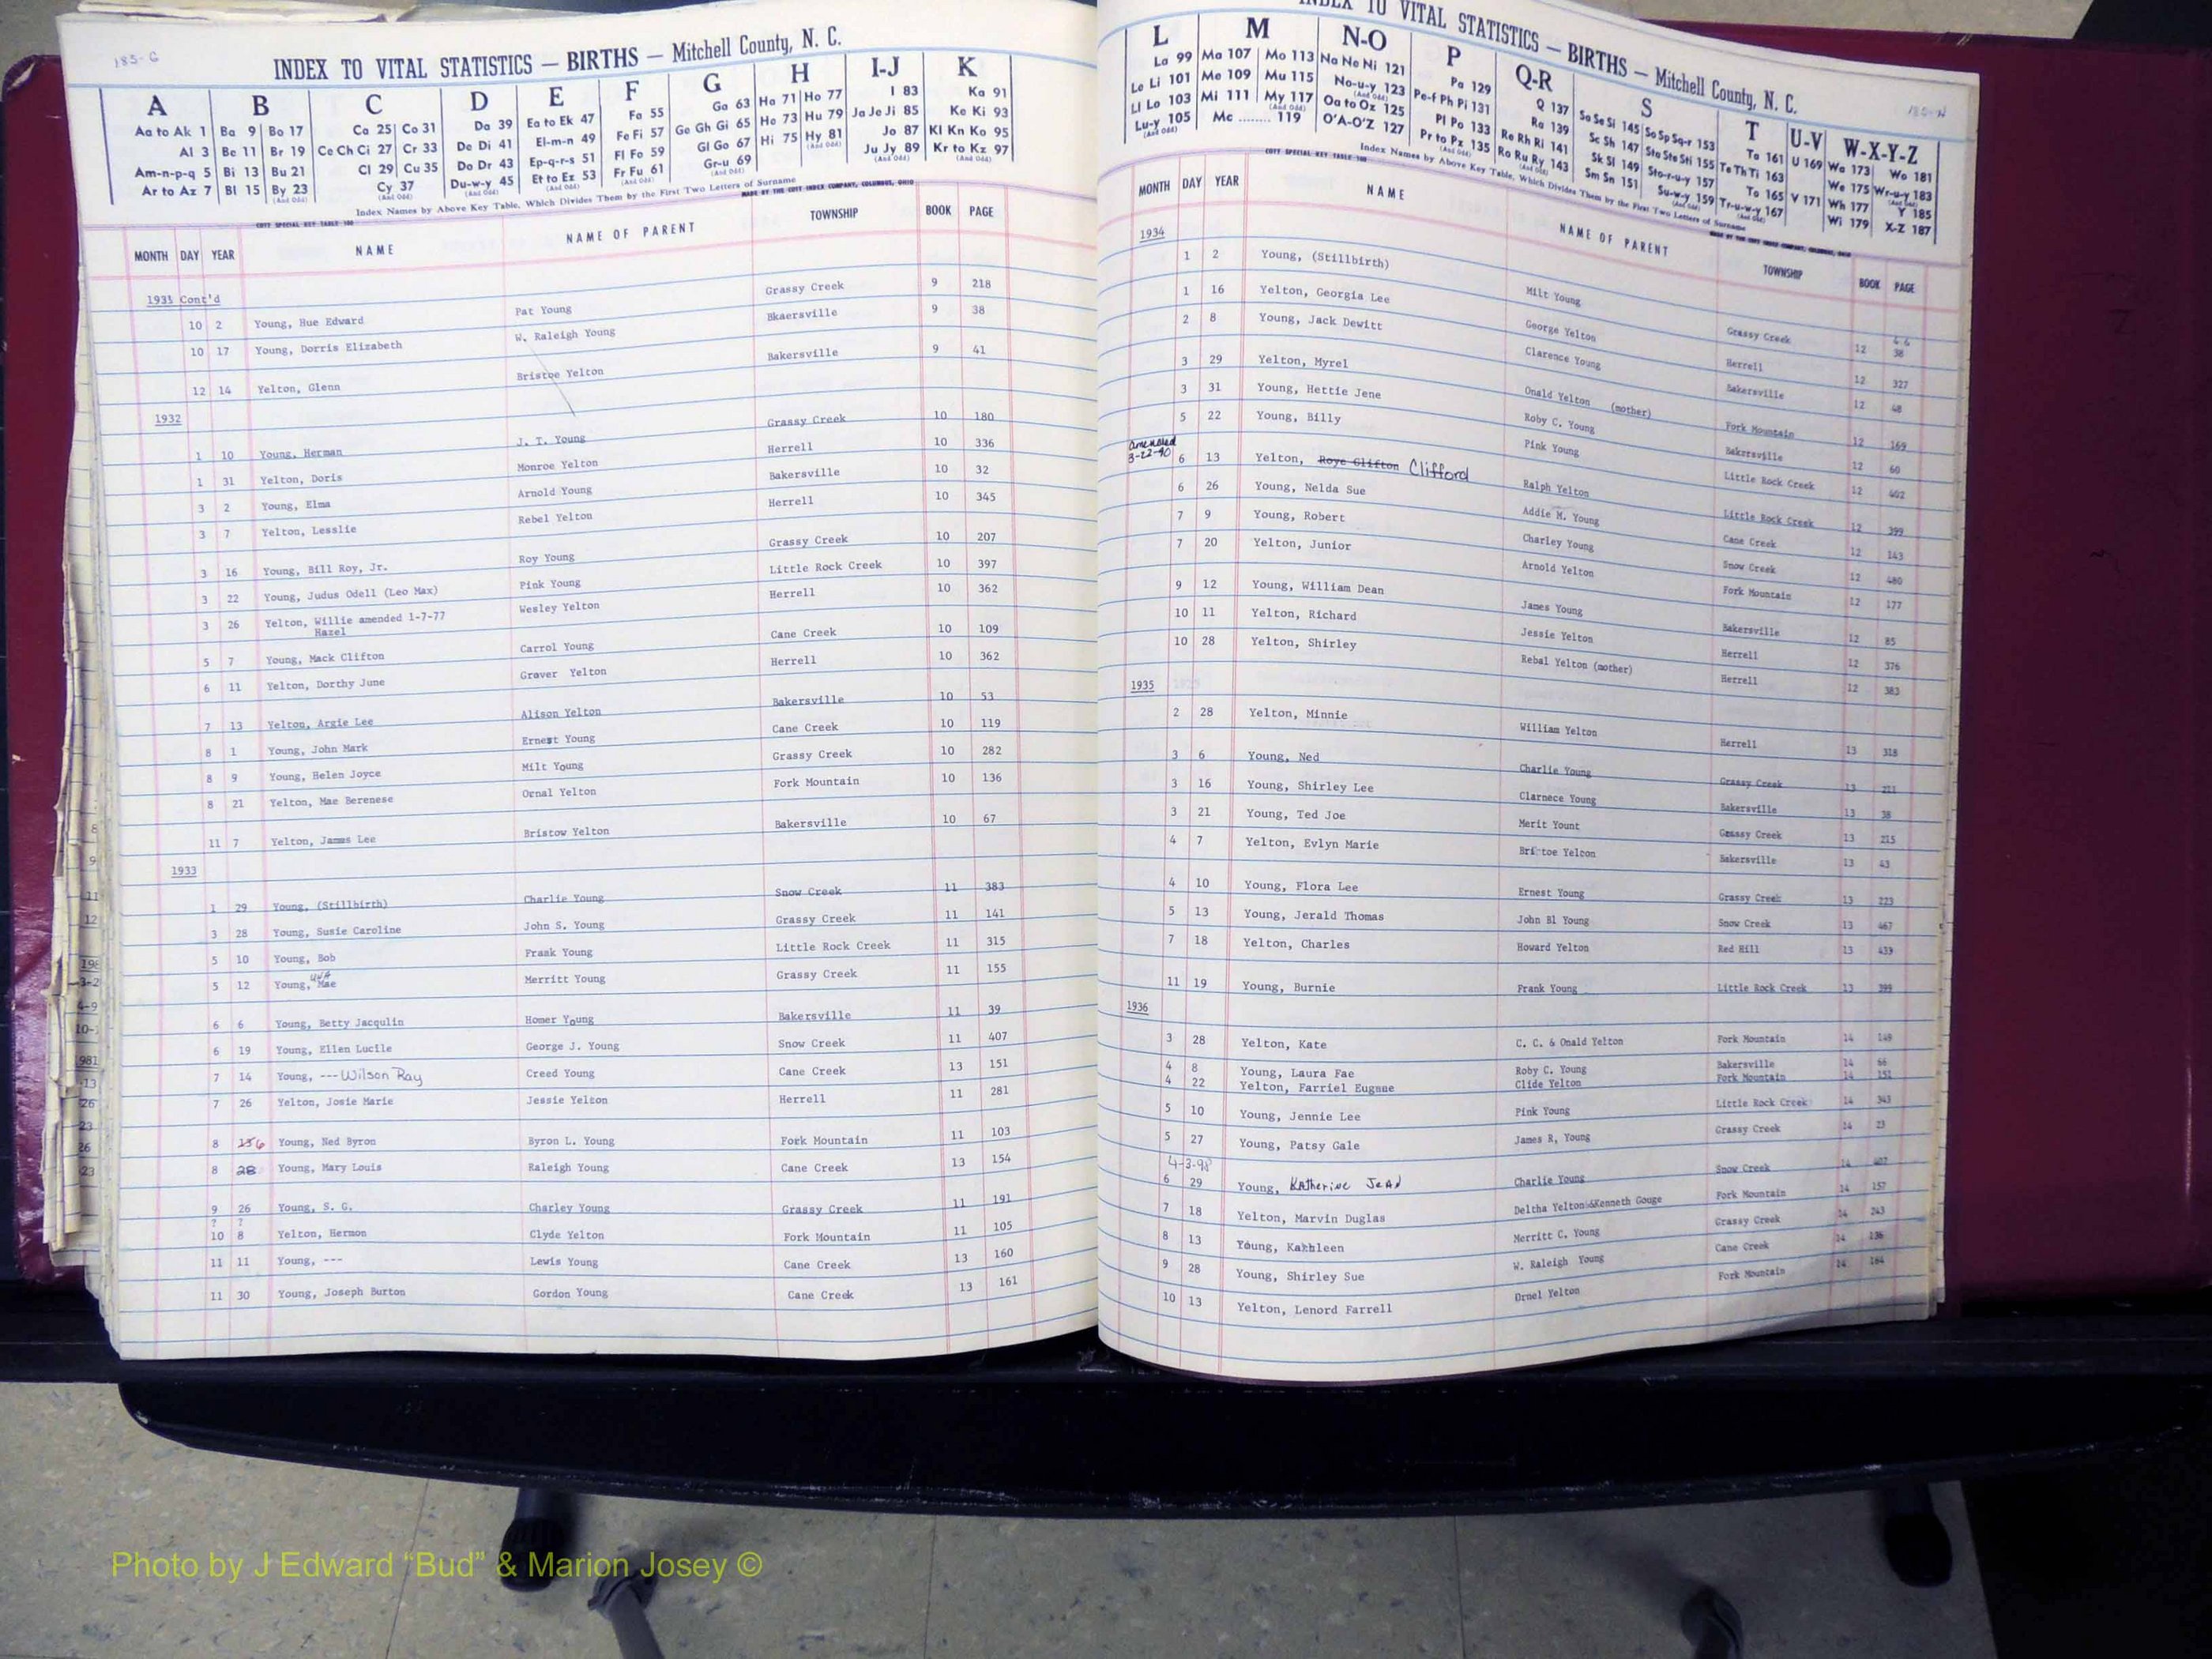 185-G
INDEX TO VITAL STATISTICS — BIRTHS — Mitchell County, N. C.
A B C D E F G H I-J K
Aa to Ak 1 Ba 9 Bo 17 Ca 25 Co 31 Da 39 Ea to Ek 47 Fa 55 Ga 63 Ha 71 Ho 77 I 83 Ka 91
Al 3 Be 11 Br 19 Ce Ch Ci 27 Cr 33 De Di 41 El-m-n 49 Fe Fi 57 Ge Gh Gi 65 He 73 Hu 79 Ja Je Ji 85 Ke Ki 93
Am-n-p-q 5 Bi 13 Bu 21 Cl 29 Cu 35 Do Dr 43 Ep-q-r-s 51 Fl Fo 59 Gl Go 67 Hi 75 Hy 81 (And Odd) Jo 87 Kl Kn Ko 95
Ar to Az 7 Bl 15 By 23 (And Odd) Cy 37 (And Odd) Du-w-y 45 (And Odd) Et to Ez 53 (And Odd) Fr Fu 61 (And Odd) Gr-u 69 (And Odd) Ju Jy 89 (And Odd) Kr to Kz 97 (And Odd)
Index Names by Above Key Table, Which Divides Them by the First Two Letters of Surname
COTT SPECIAL KEY TABLE 100 MADE BY THE COTT INDEX COMPANY, COLUMBUS, OHIO
MONTH DAY YEAR NAME NAME OF PARENT TOWNSHIP BOOK PAGE
1931 Cont'd
10 2 Young, Hue Edward Pat Young Grassy Creek 9 218
10 17 Young, Dorris Elizabeth W. Raleigh Young Bkaersville 9 38
12 14 Yelton, Glenn Bristoe Yelton Bakersville 9 41
1932
1 10 Young, Herman J. T. Young Grassy Creek 10 180
1 31 Yelton, Doris Monroe Yelton Herrell 10 336
3 2 Young, Elma Arnold Young Bakersville 10 32
3 7 Yelton, Lesslie Rebel Yelton Herrell 10 345
3 16 Young, Bill Roy, Jr. Roy Young Grassy Creek 10 207
3 22 Young, Judus Odell (Leo Max) Pink Young Little Rock Creek 10 397
3 26 Yelton, Willie amended 1-7-77 Wesley Yelton Herrell 10 362
Hazel
5 7 Young, Mack Clifton Carrol Young Cane Creek 10 109
6 11 Yelton, Dorthy June Grover Yelton Herrell 10 362
7 13 Yelton, Argie Lee Alison Yelton Bakersville 10 53
8 1 Young, John Mark Ernest Young Cane Creek 10 119
8 9 Young, Helen Joyce Milt Young Grassy Creek 10 282
8 21 Yelton, Mae Berenese Ornal Yelton Fork Mountain 10 136
11 7 Yelton, James Lee Bristow Yelton Bakersville 10 67
1933
1 29 Young, (Stillbirth) Charlie Young Snow Creek 11 383
3 28 Young, Susie Caroline John S. Young Grassy Creek 11 141
5 10 Young, Bob Frank Young Little Rock Creek 11 315
5 12 Young, Mae Merritt Young Grassy Creek 11 155
6 6 Young, Betty Jacqulin Homer Young Bakersville 11 39
6 19 Young, Ellen Lucile George J. Young Snow Creek 11 407
7 14 Young, --- Wilson Ray Creed Young Cane Creek 13 151
7 26 Yelton, Josie Marie Jessie Yelton Herrell 11 281
8 Young, Ned Byron Byron L. Young Fork Mountain 11 103
8 28 Young, Mary Louis Raleigh Young Cane Creek 13 154
9 26 Young, S. G. Charley Young Grassy Creek 11 191
? ?
10 8 Yelton, Hermon Clyde Yelton Fork Mountain 11 105
11 11 Young, --- Lewis Young Cane Creek 13 160
11 30 Young, Joseph Burton Gordon Young Cane Creek 13 161
INDEX TO VITAL STATISTICS — BIRTHS — Mitchell County, N. C.
L M N-O P Q-R S T U-V W-X-Y-Z
La 99 Ma 107 Mo 113 Na Ne Ni 121 Pa 129 Q 137 Sa Se Si 145 So Sp Sq-r 153 Ta 161 U 169 Wa 173 Wo 181
Le Li 101 Me 109 Mu 115 No-u-y 123 (And Odd) Pe-f Ph Pi 131 Ra 139 Sc Sh 147 Sta Ste Sti 155 Te Th Ti 163 We 175 Wr-u-y 183 (And Odd)
Ll Lo 103 Mi 111 My 117 (And Odd) Oa to Oz 125 Pl Po 133 Re Rh Ri 141 Sk Sl 149 Sto-r-u-y 157 To 165 V 171 Wh 177 Y 185
Lu-y 105 (And Odd) Mc ........ 119 O'A-O'Z 127 Pr to Pz 135 (And Odd) Ro Ru Ry 143 (And Odd) Sm Sn 151 Su-w-y 159 (And Odd) Tr-u-w-y 167 (And Odd) Wi 179 X-Z 187
Index Names by Above Key Table, Which Divides Them by the First Two Letters of Surname
MONTH DAY YEAR NAME NAME OF PARENT TOWNSHIP BOOK PAGE
1934
1 2 Young, (Stillbirth) Milt Young Grassy Creek 12
1 16 Yelton, Georgia Lee George Yelton Herrell 12 327
2 8 Young, Jack Dewitt Clarence Young Bakersville 12 48
3 29 Yelton, Myrel Onald Yelton (mother) Fork Mountain 12 169
3 31 Young, Hettie Jene Roby C. Young Bakersville 12 60
5 22 Young, Billy Pink Young Little Rock Creek 12 402
amended
3-22-90 6 13 Yelton, Roye Clifton Clifford Ralph Yelton Little Rock Creek 12 399
6 26 Young, Nelda Sue Addie M. Young Cane Creek 12 143
7 9 Young, Robert Charley Young Snow Creek 12 480
7 20 Yelton, Junior Arnold Yelton Fork Mountain 12 177
9 12 Young, William Dean James Young Bakersville 12 85
10 11 Yelton, Richard Jessie Yelton Herrell 12 376
10 28 Yelton, Shirley Rebal Yelton (mother) Herrell 12 383
1935
2 28 Yelton, Minnie William Yelton Herrell 13 318
3 6 Young, Ned Charlie Young Grassy Creek 13
3 16 Young, Shirley Lee Clarnece Young Bakersville 13 38
3 21 Young, Ted Joe Merit Yount Grassy Creek 13 215
4 7 Yelton, Evlyn Marie Bristoe Yelton Bakersville 13 43
4 10 Young, Flora Lee Ernest Young Grassy Creek 13 223
5 13 Young, Jerald Thomas John Bl Young Snow Creek 13 467
7 18 Yelton, Charles Howard Yelton Red Hill 13 439
11 19 Young, Burnie Frank Young Little Rock Creek 13 399
1936
3 28 Yelton, Kate C. C. & Onald Yelton Fork Mountain 14 149
4 8 Young, Laura Fae Roby C. Young Bakersville 14 66
4 22 Yelton, Farriel Eugnne Clide Yelton Fork Mountain 14 151
5 10 Young, Jennie Lee Pink Young Little Rock Creek 14 343
5 27 Young, Patsy Gale James R, Young Grassy Creek 14 23
4-3-98
6 29 Young, Katherine Jean Charlie Young Snow Creek 14 407
7 18 Yelton, Marvin Duglas Deltha Yelton &Kenneth Gouge Fork Mountain 14 157
8 13 Young, Kathleen Merritt C. Young Grassy Creek 14 243
9 28 Young, Shirley Sue W. Raleigh Young Cane Creek 14 136
10 13 Yelton, Lenord Farrell Ornel Yelton Fork Mountain 14 164
Photo by J Edward “Bud” & Marion Josey ©